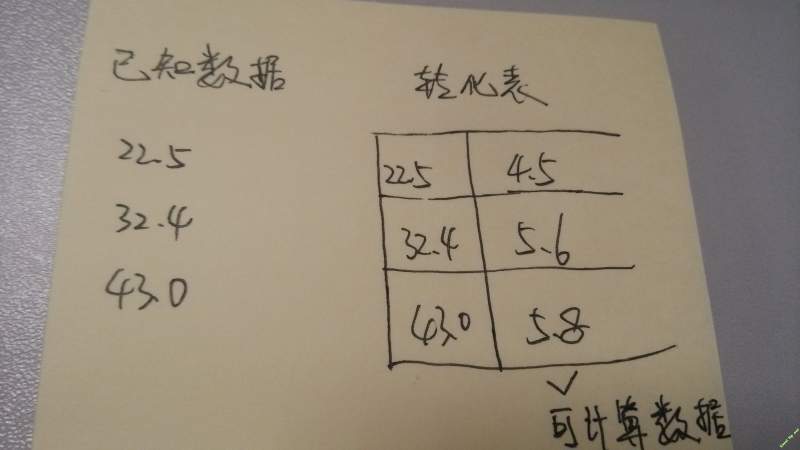 已知数据
22.5
32.4
43.0
转化表
22.5 4.5
32.4 5.6
43.0 5.8
可计算数据